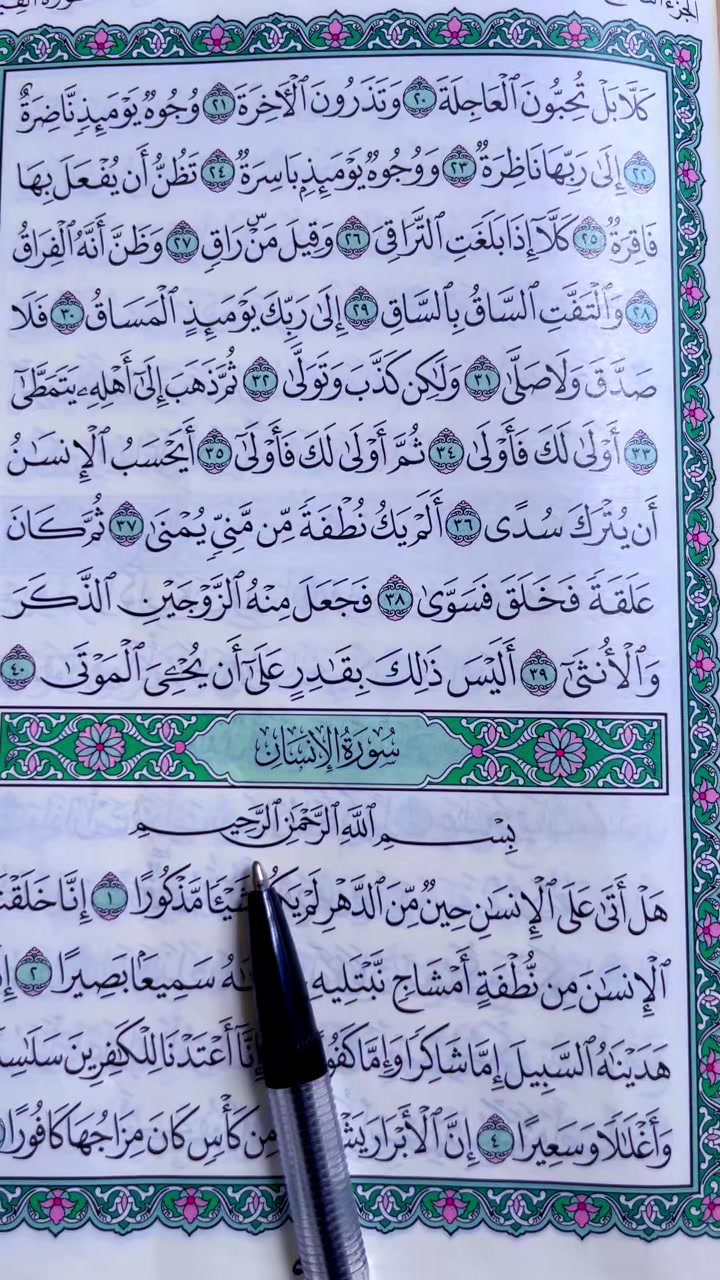 كَلَّا بَلْ تُحِبُّونَ ٱلْعَاجِلَةَ ٢٠ وَتَذَرُونَ ٱلْأٓخِرَةَ ٢١ وُجُوهٌ يَوْمَئِذٍ نَّاضِرَةٌ
٢٢ إِلَىٰ رَبِّهَا نَاظِرَةٌ ٢٣ وَوُجُوهٌ يَوْمَئِذٍۭ بَاسِرَةٌ ٢٤ تَظُنُّ أَن يُفْعَلَ بِهَا
فَاقِرَةٌ ٢٥ كَلَّآ إِذَا بَلَغَتِ ٱلتَّرَاقِىَ ٢٦ وَقِيلَ مَنْۜ رَاقٍ ٢٧ وَظَنَّ أَنَّهُ ٱلْفِرَاقُ
٢٨ وَٱلْتَفَّتِ ٱلسَّاقُ بِٱلسَّاقِ ٢٩ إِلَىٰ رَبِّكَ يَوْمَئِذٍ ٱلْمَسَاقُ ٣٠ فَلَا
صَدَّقَ وَلَا صَلَّىٰ ٣١ وَلَٰكِن كَذَّبَ وَتَوَلَّىٰ ٣٢ ثُمَّ ذَهَبَ إِلَىٰٓ أَهْلِهِۦ يَتَمَطَّىٰٓ
٣٣ أَوْلَىٰ لَكَ فَأَوْلَىٰ ٣٤ ثُمَّ أَوْلَىٰ لَكَ فَأَوْلَىٰٓ ٣٥ أَيَحْسَبُ ٱلْإِنسَٰنُ
أَن يُتْرَكَ سُدًى ٣٦ أَلَمْ يَكُ نُطْفَةً مِّن مَّنِىٍّ يُمْنَىٰ ٣٧ ثُمَّ كَانَ
عَلَقَةً فَخَلَقَ فَسَوَّىٰ ٣٨ فَجَعَلَ مِنْهُ ٱلزَّوْجَيْنِ ٱلذَّكَرَ
وَٱلْأُنثَىٰٓ ٣٩ أَلَيْسَ ذَٰلِكَ بِقَٰدِرٍ عَلَىٰٓ أَن يُحْۦِىَ ٱلْمَوْتَىٰ ٤٠
سُورَةُ الإِنسَان
بِسْمِ ٱللَّهِ ٱلرَّحْمَٰنِ ٱلرَّحِيمِ
هَلْ أَتَىٰ عَلَى ٱلْإِنسَٰنِ حِينٌ مِّنَ ٱلدَّهْرِ لَمْ يَكُن شَيْـًٔا مَّذْكُورًا ١ إِنَّا خَلَقْنَا
ٱلْإِنسَٰنَ مِن نُّطْفَةٍ أَمْشَاجٍ نَّبْتَلِيهِ سَمِيعًۢا بَصِيرًا ٢
هَدَيْنَٰهُ ٱلسَّبِيلَ إِمَّا شَاكِرًا وَإِمَّا إِنَّآ أَعْتَدْنَا لِلْكَٰفِرِينَ
وَأَغْلَٰلًا وَسَعِيرًا ٤ إِنَّ ٱلْأَبْرَارَ مِن كَأْسٍ كَانَ مِزَاجُهَا كَافُورًا